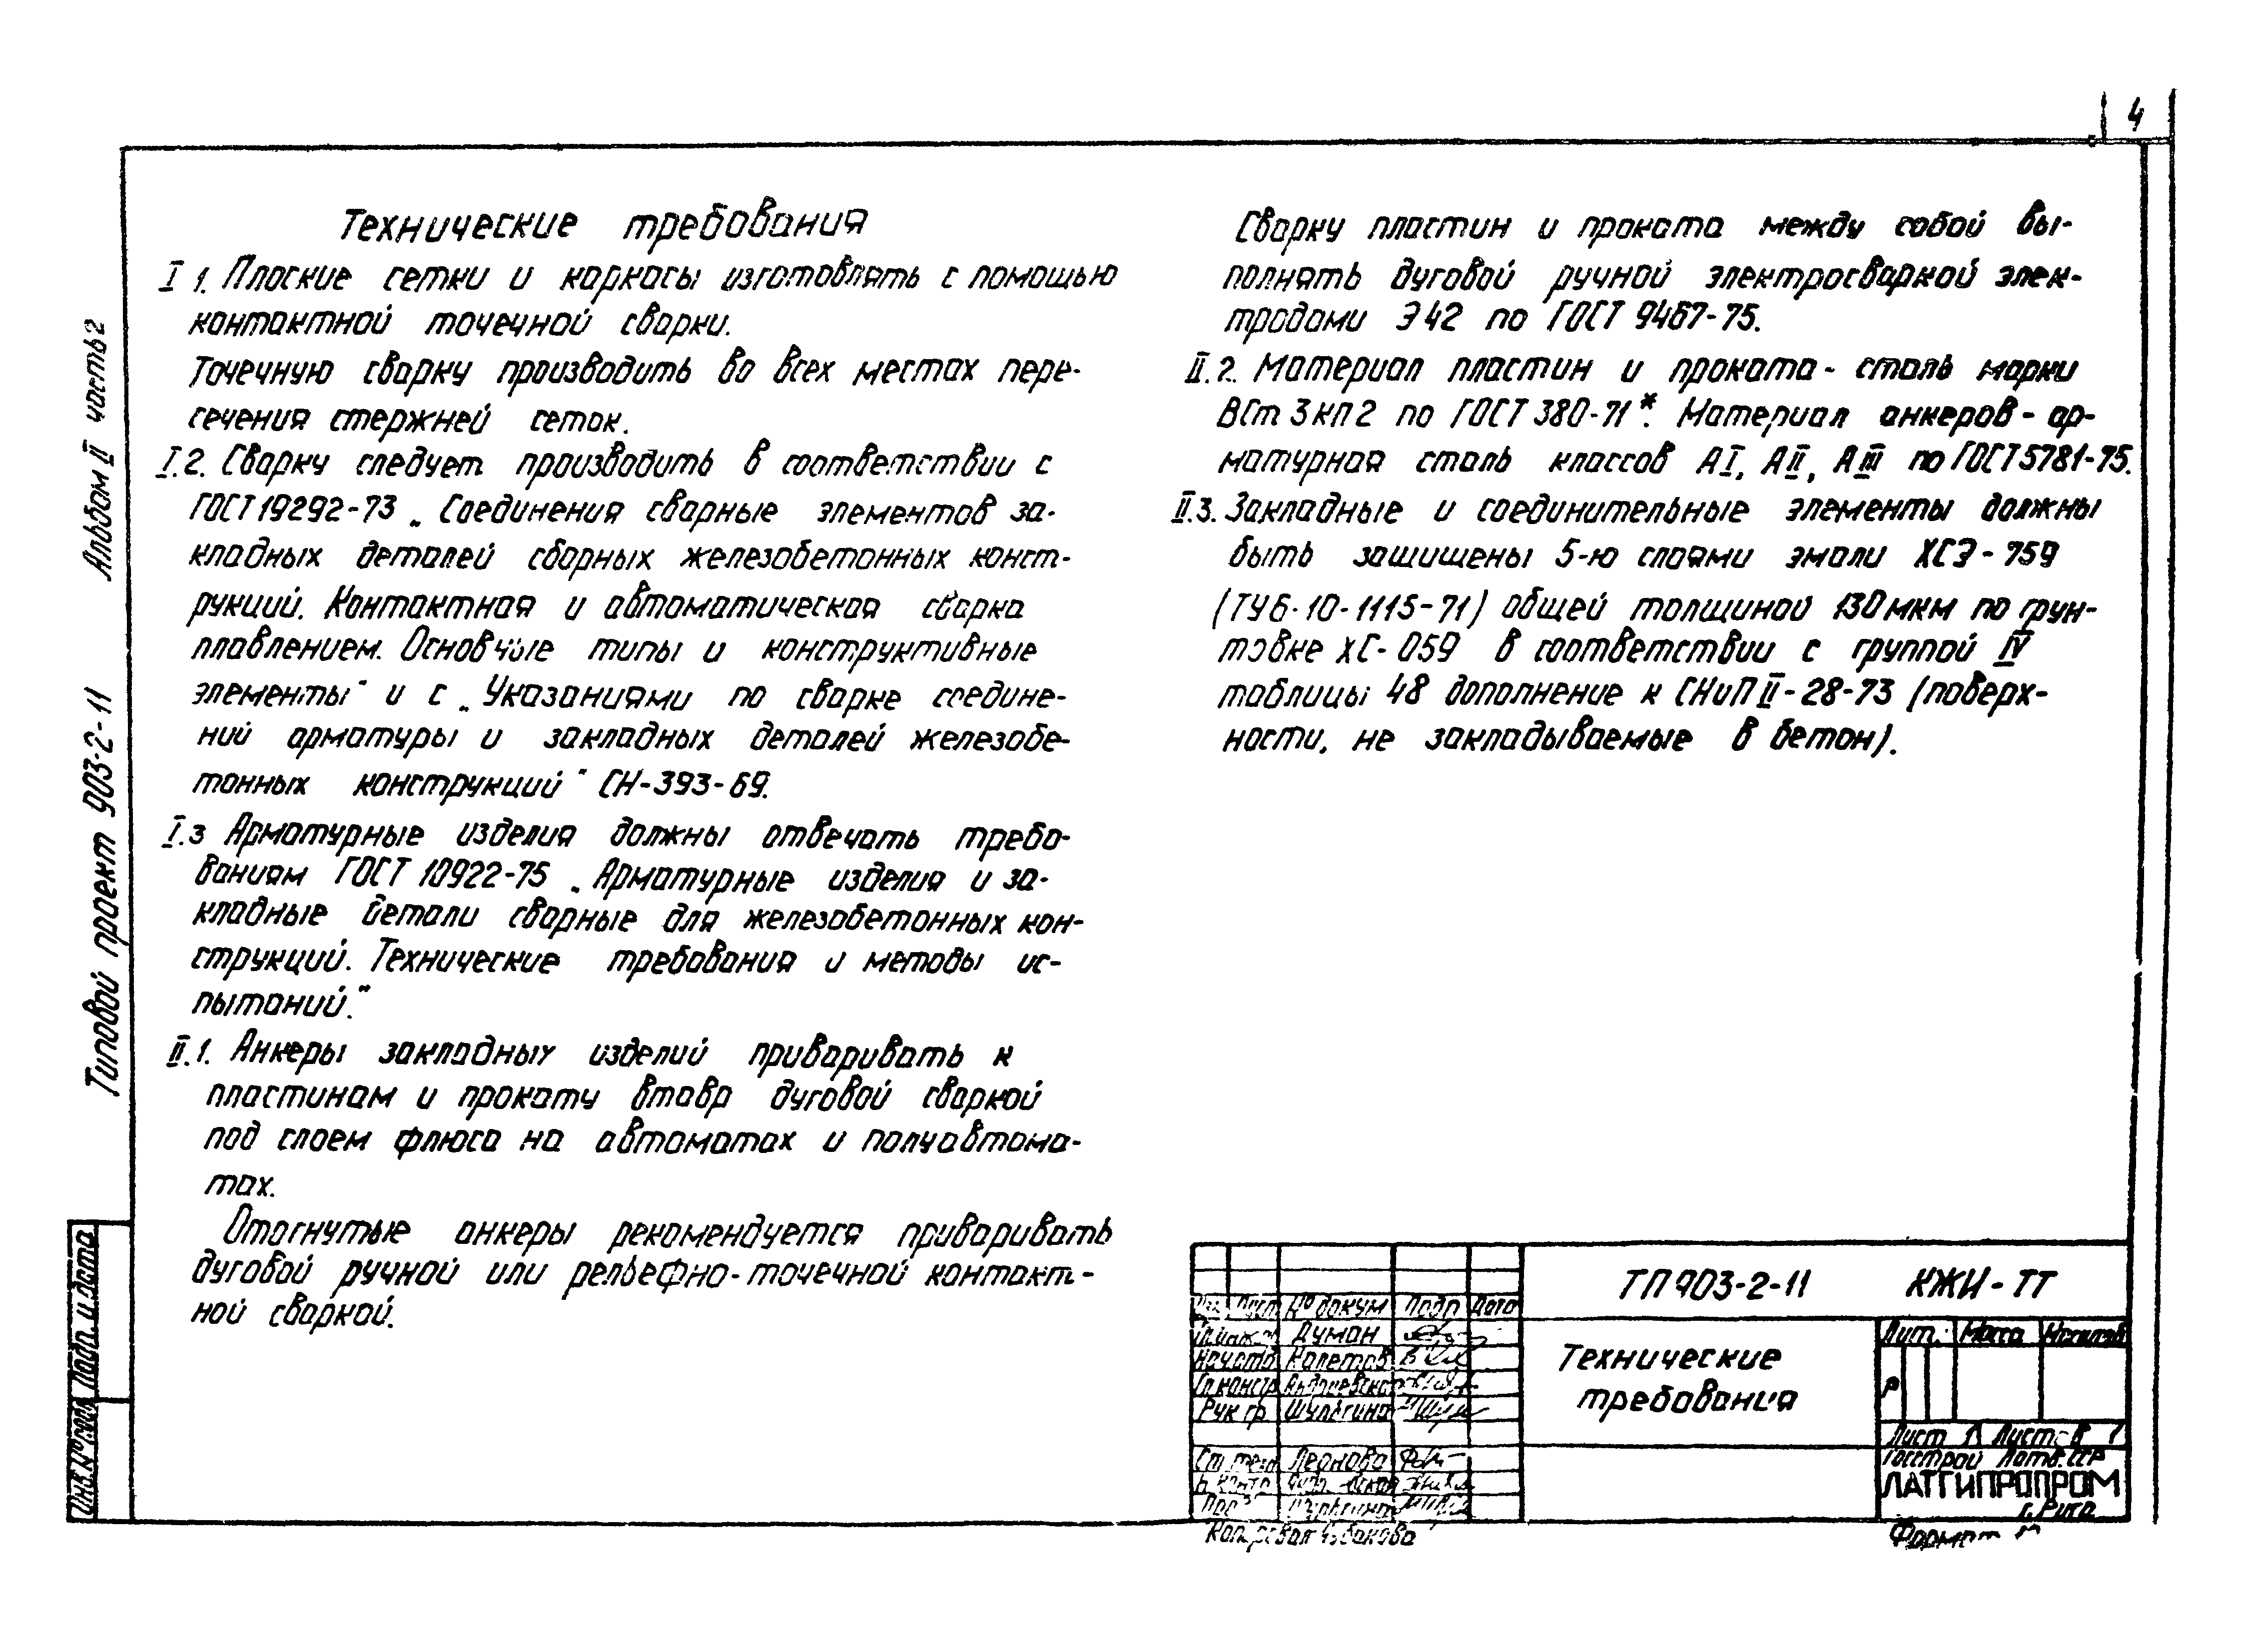 4
Технические требования
I 1. Плоские сетки и каркасы изготовлять с помощью
контактной точечной сварки.
Точечную сварку производить во всех местах пере-
сечения стержней сеток.
I.2. Сварку следует производить в соответствии с
ГОСТ 19292-73 „Соединения сварные элементов за-
кладных деталей сборных железобетонных конст-
рукций. Контактная и автоматическая сварка
плавлением. Основные типы и конструктивные
элементы" и с „Указаниями по сварке соедине-
ний арматуры и закладных деталей железобе-
тонных конструкций" СН-393-69.
I.3 Арматурные изделия должны отвечать требо-
ваниям ГОСТ 10922-75 „Арматурные изделия и за-
кладные детали сварные для железобетонных кон-
струкций. Технические требования и методы ис-
пытаний."
II.1. Анкеры закладных изделий приваривать к
пластинам и прокату втавр дуговой сваркой
под слоем флюса на автоматах и полуавтома-
тах.
Отогнутые анкеры рекомендуется приваривать
дуговой ручной или рельефно-точечной контакт-
ной сваркой.
Сварку пластин и проката между собой вы-
полнять дуговой ручной электросваркой элек-
тродами Э42 по ГОСТ 9467-75.
II.2. Материал пластин и проката - сталь марки
ВСт 3 кп 2 по ГОСТ 380-71*. Материал анкеров - ар-
матурная сталь классов АI, АII, АIII по ГОСТ 5781-75.
II.3. Закладные и соединительные элементы должны
быть защищены 5-ю слоями эмали ХСЭ-759
(ТУ6-10-1115-71) общей толщиной 130 мкм по грун-
товке ХС-059 в соответствии с группой IV
таблицы 48 дополнение к СНиП II-28-73 (поверх-
ности, не закладываемые в бетон).
Типовой проект 903-2-11 Альбом II часть 2
Подп. и дата
Инв. № подл
ТП 903-2-11 КЖИ-ТТ
Технические
требования
Изм Лист № докум Подп Дата
Гл.инж.пр Думан
Нач отд Калетов
Гл.констр
Рук гр Шульгина
Ст техн Леонова
Н. контр
Лит. Масса Масштаб
Р
Лист 1 Листов 1
Госстрой Латв. ССР
ЛАТГИПРОПРОМ
г. Рига
Копировал
Формат